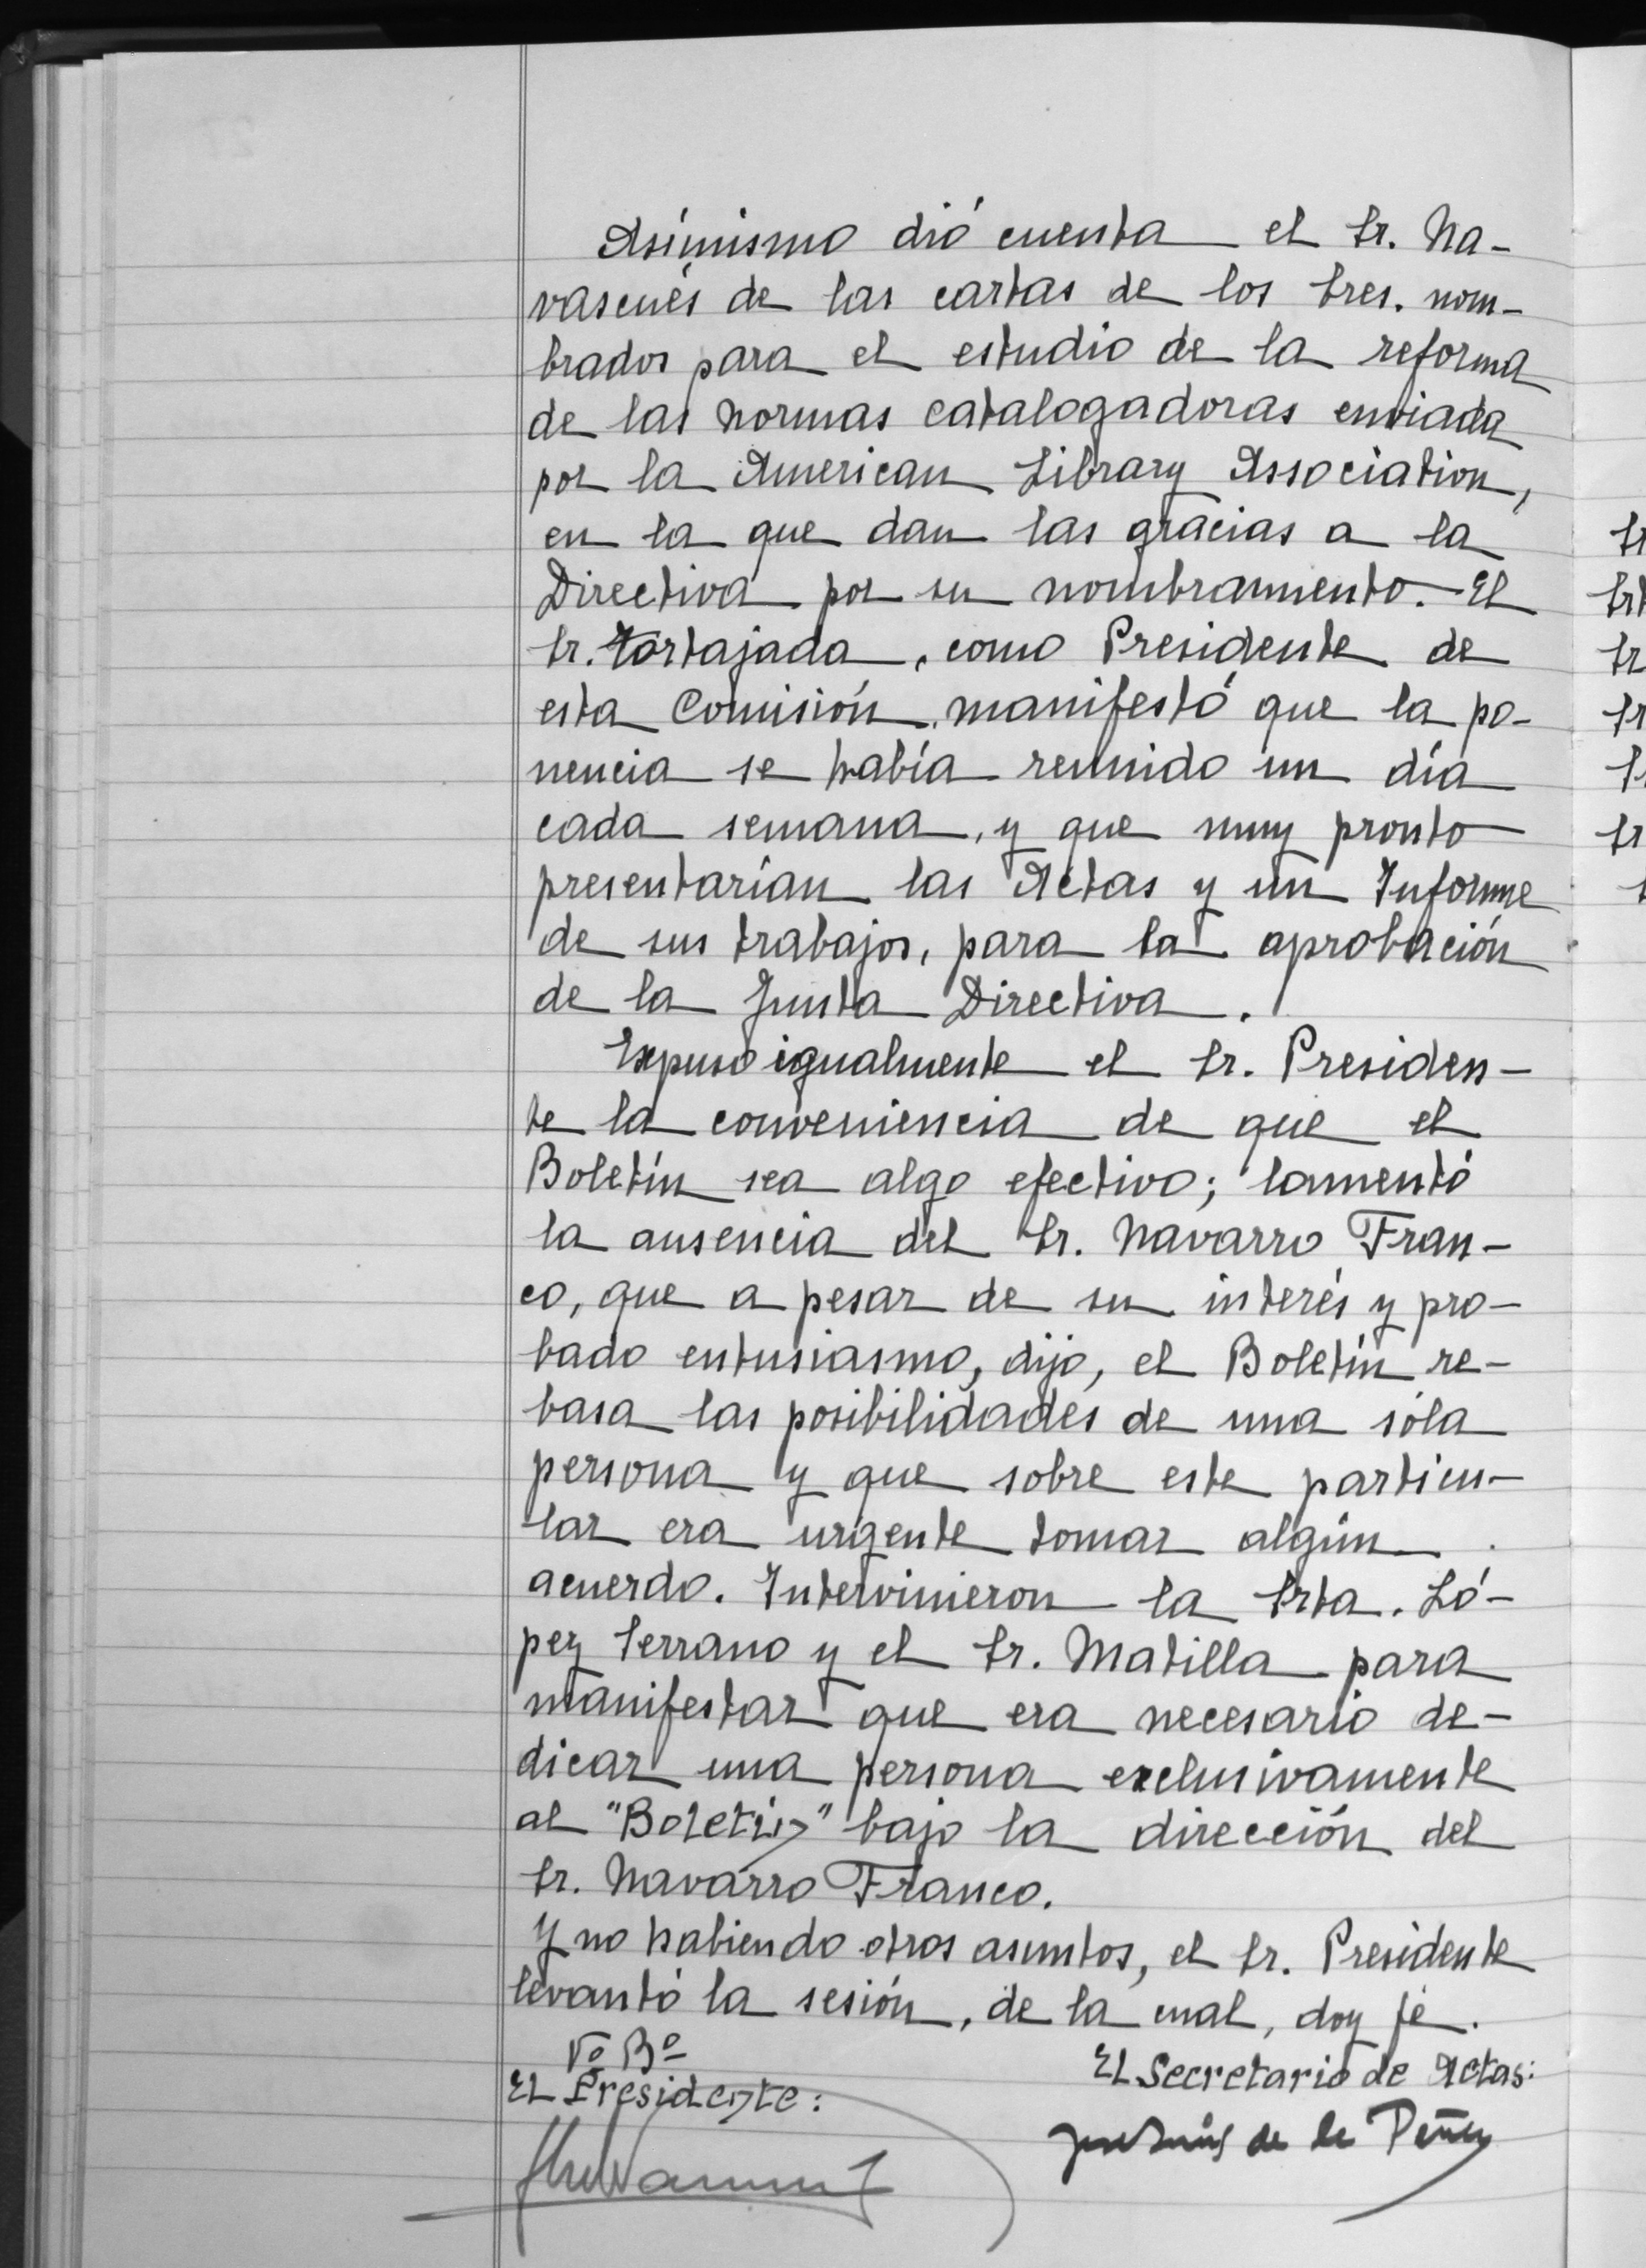 Asímismo dió cuenta el Sr. Na-
vascués de las cartas de los Sres. nom-
brados para el estudio de la reforma
de las normas catalogadoras enviada
por la American Library Association,
en la que dan las gracias a la
Directiva por su nombramiento. El
Sr. Tortajada, como Presidente de
esta Comisión, manifestó que la po-
nencia se había reunido un día
cada semana, y que muy pronto
presentarían las Actas y un Informe
de sus trabajos, para la aprobación
de la Junta Directiva.
Expuso igualmente el Sr. Presiden-
te la conveniencia de que el
Boletín sea algo efectivo; lamentó
la ausencia del Sr. Navarro Fran-
co, que a pesar de su interés y pro-
bado entusiasmo, dijo, el Boletín re-
basa las posibilidades de una sóla
persona y que sobre este particu-
lar era urgente tomar algún
acuerdo. Intervinieron la Srta. Ló-
pez Serrano y el Sr. Matilla para
manifestar que era necesario de-
dicar una persona exclusivamente
al "Boletín" bajo la dirección del
Sr. Navarro Franco.
Y no habiendo otros asuntos, el Sr. Presidente
levantó la sesión, de la cual, doy fé.
Vº Bº
El Presidente:
El Secretario de Actas:
de la Peña